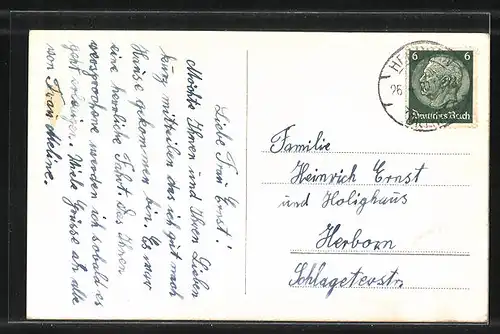 Liebe Frau Ernst!
Möchte Ihnen und Ihren Lieben
kurz mitteilen das ich gut nach
Hause gekommen bin. Es war
eine herrliche Fahrt. Das Ihnen
versprochene werden ich sobald es
geht Viele Grüsse an alle
von Frau
6 6
Deutsches Reich
26
Familie
Heinrich Ernst
und Holighaus
Herborn
Schlageterstr